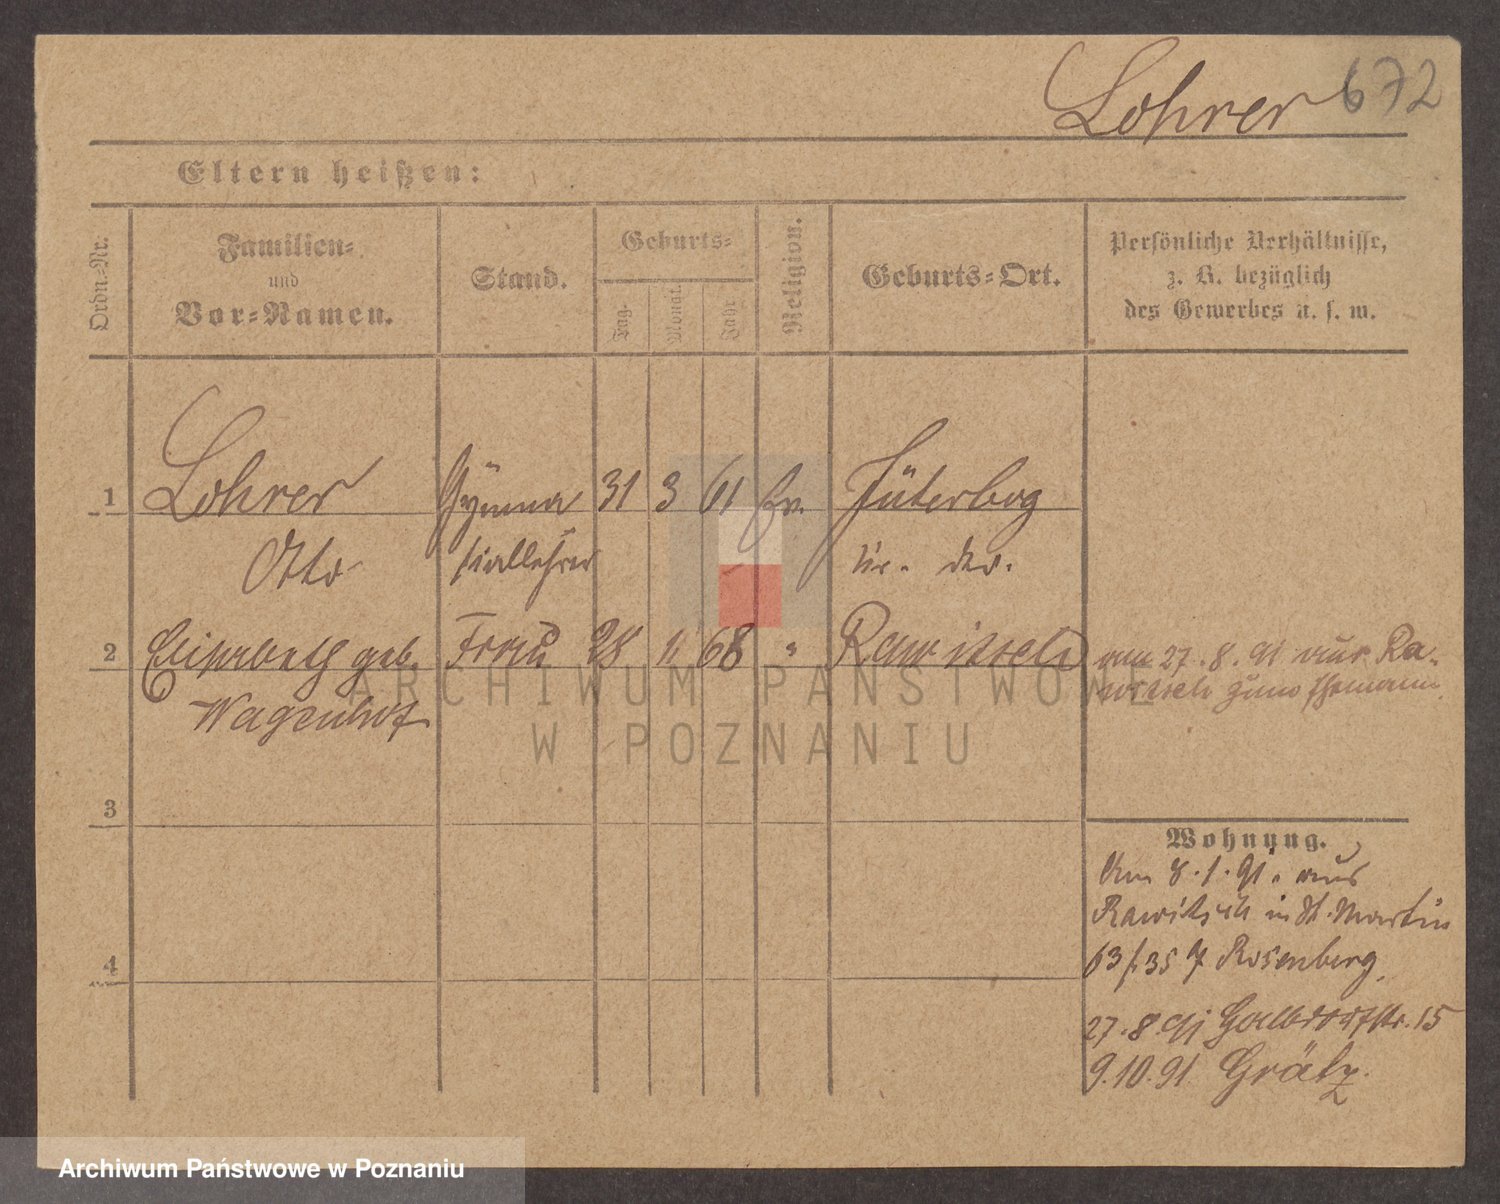 Lohrer 672
Eltern heißen:
Ordn.-Nr.
Familien-
und
Vor-Namen.
Stand.
Geburts-
Tag.
Monat.
Jahr
Religion.
Geburts-Ort.
Persönliche Verhältnisse,
z. B. bezüglich
des Gewerbes u. s. w.
1 Lohrer Gymna 31 3 61 Ev. Jüterbog
Otto siallehrer
2 Elisabeth geb. Frau 28 11 68 " Rawitsch
Wagenhof
am 27.8.91 aus Ra-
witsch zum Ehemann.
ARCHIWUM PAŃSTWOWE
W POZNANIU
3
4
Wohnung.
Am 8.1.91. aus
Rawitsch in St. Martin
63 35 Rosenberg.
27.8.91 Halbdorfstr. 15
9.10.91 Grätz.
Archiwum Państwowe w Poznaniu